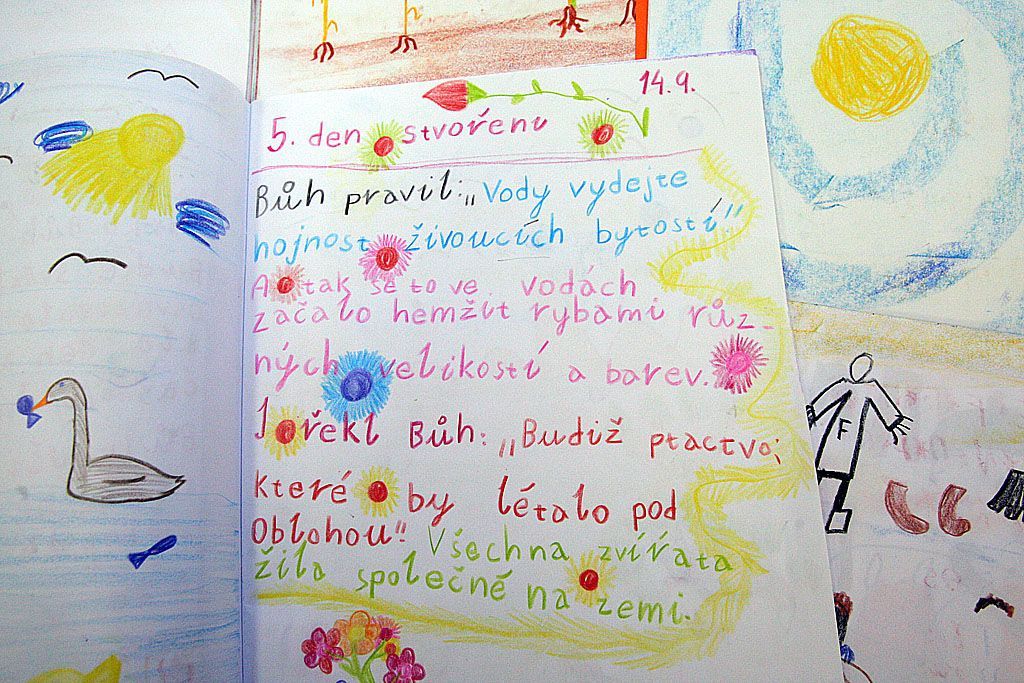 14.9.
5. den stvořenu
Bůh pravil: „Vody vydejte
hojnost živoucích bytostí"
A tak se to ve vodách
začalo hemžit rybami růz-
ných velikostí a barev.
I řekl Bůh: „Budiž ptactvo,
které by létalo pod
Oblohou"! Všechna zvířata
žila společně na zemi.
F